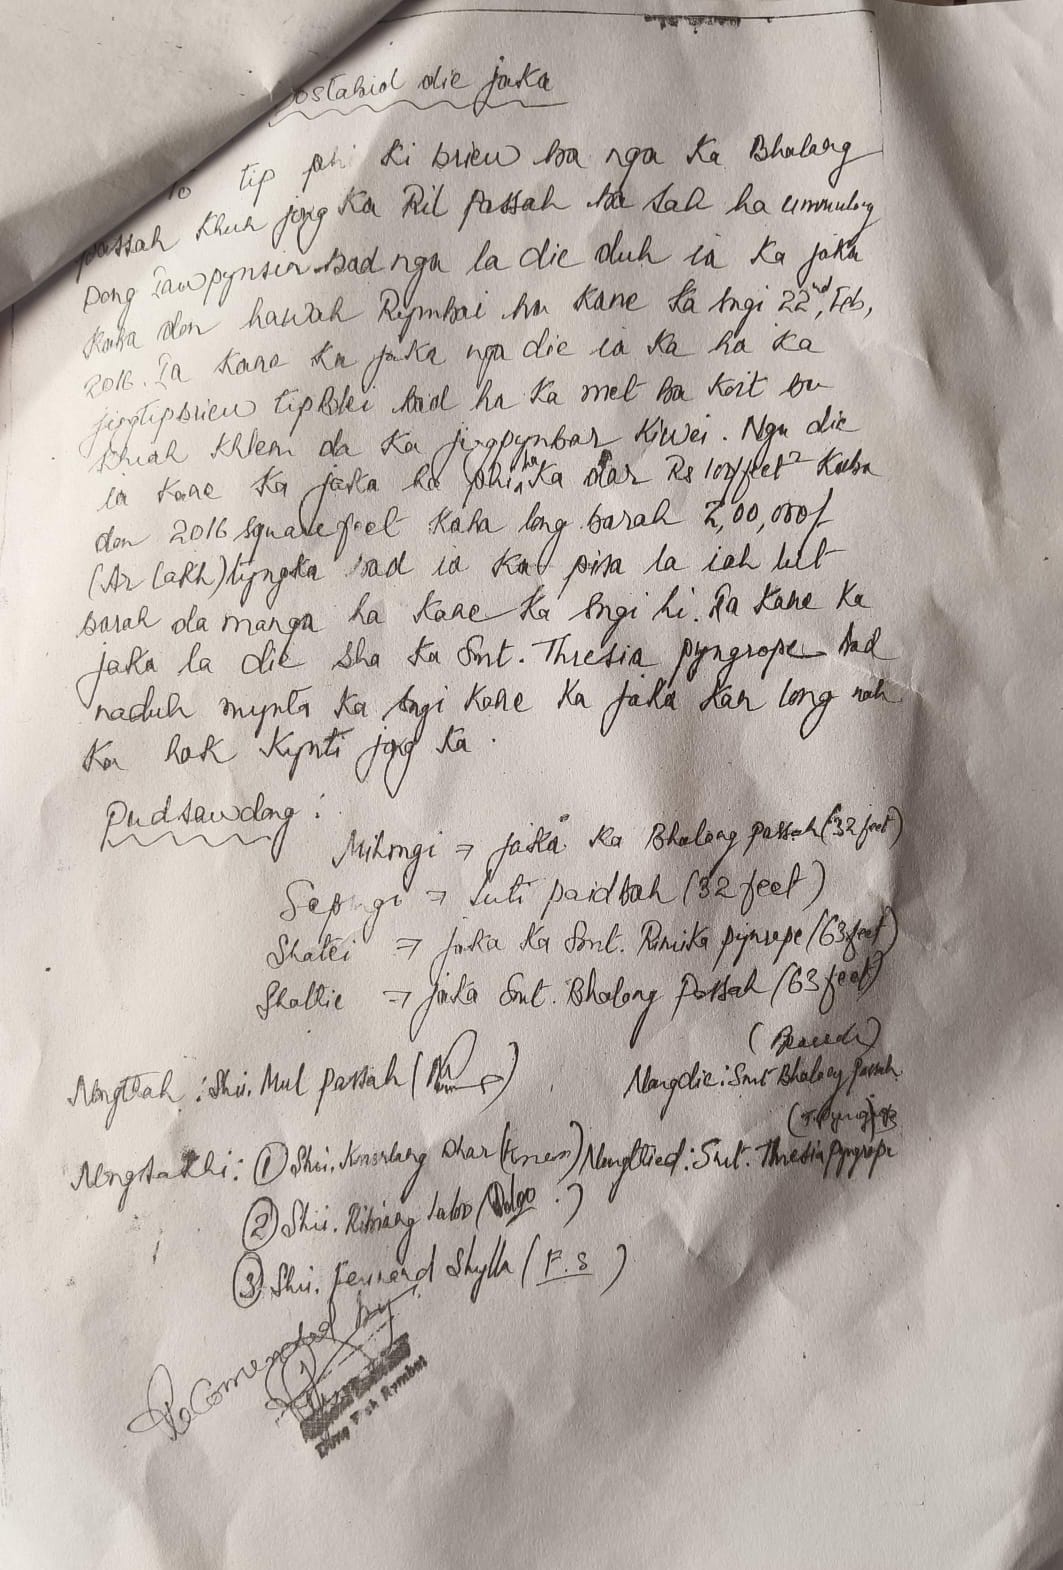 ostabid die jaka
tip phi ki briew ba nga Ka Bhalang
passah khun jong Ka Ril Passah ba sah ha ummulong
Dong Iawpynsin bad nga la die duh ia Ka jaka
Kaba don hawah Rymbai ha Kane Ka Sngi 22nd, Feb,
2016. Ia Kane Ka jaka nga die ia Ka ha Ka
jingtipbriew tipblei bad ha Ka met ba Koit ba
Khiah Khlem da Ka jingpynbar Kiwei. Nga die
ia Kane Ka jaka ha phi ha Ka dar Rs 100/feet² Kaba
don 2016 Square feet Kaba long barah 2,00,000/
(Ar lakh) tyngka bad ia Ka pisa la ioh lut
barah da manga ha Kane Ka Sngi hi. Ia Kane Ka
jaka la die sha Ka Smt. Thresia pyngrope bad
naduh mynta Ka Sngi Kane Ka jaka Kan long noh
Ka hok Kynti jong Ka.
Pudsawdong :
Mihngi ⇒ jaka Ka Bhalang Passah (32 feet)
Sepngi ⇒ Luti paidbah (32 feet)
Shatei ⇒ jaka Ka Smt. Rimika pyngrope (63 feet)
Shathie ⇒ jaka Smt. Bhalang Passah (63 feet)
Nongthah : Shri. Mul Passah
Nongdie : Smt Bhalang Passah
Nongsakhi : ① Shri. Dhar
Nongthied : Smt. Thresia Pyngrope
② Shri.
③ Shri. Fernand Shylla (F.S)
Recomended by
Dong Rymbai